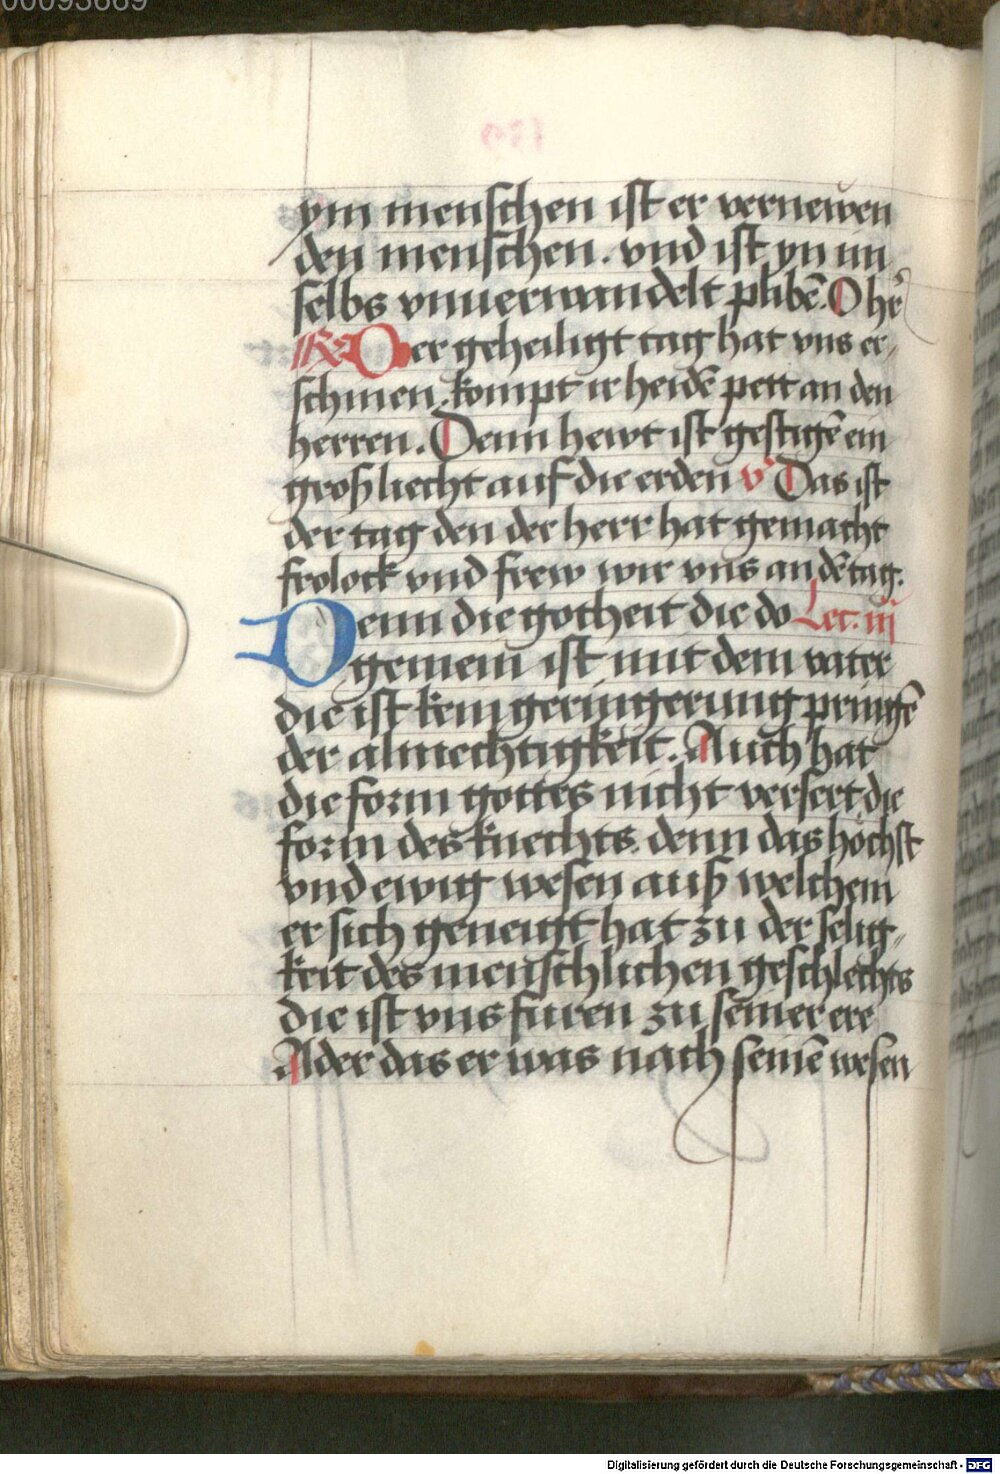 00093669
ym menschen ist er vernewen
den menschen. vnd ist yn im
selbs vnuerwandelt plibē. O hẽr
℟ Der geheiligt tag hat vns er-
schinen. kompt ir heidē pett an den
herren. Denn hewt ist gestigē ein
groß liecht auf die erden v̕ Das ist
der tag den der herr hat gemacht
frolock vnd frew wir vns an dē tag.
Denn die gotheit die do Lec. iij
gemein ist mit dem vater
die ist kein geringerung pringē
der almechtigkeit. Auch hat
die form gottes nicht versert die
form des knechts. denn das höchst
vnd ewig wesen auß welchem
er sich geneigt hat zu der selig-
keit des menschlichen geschlechts
die ist vns füren zu seiner ere
Ader das er was nach seinē wesen
Digitalisierung gefördert durch die Deutsche Forschungsgemeinschaft - DFG